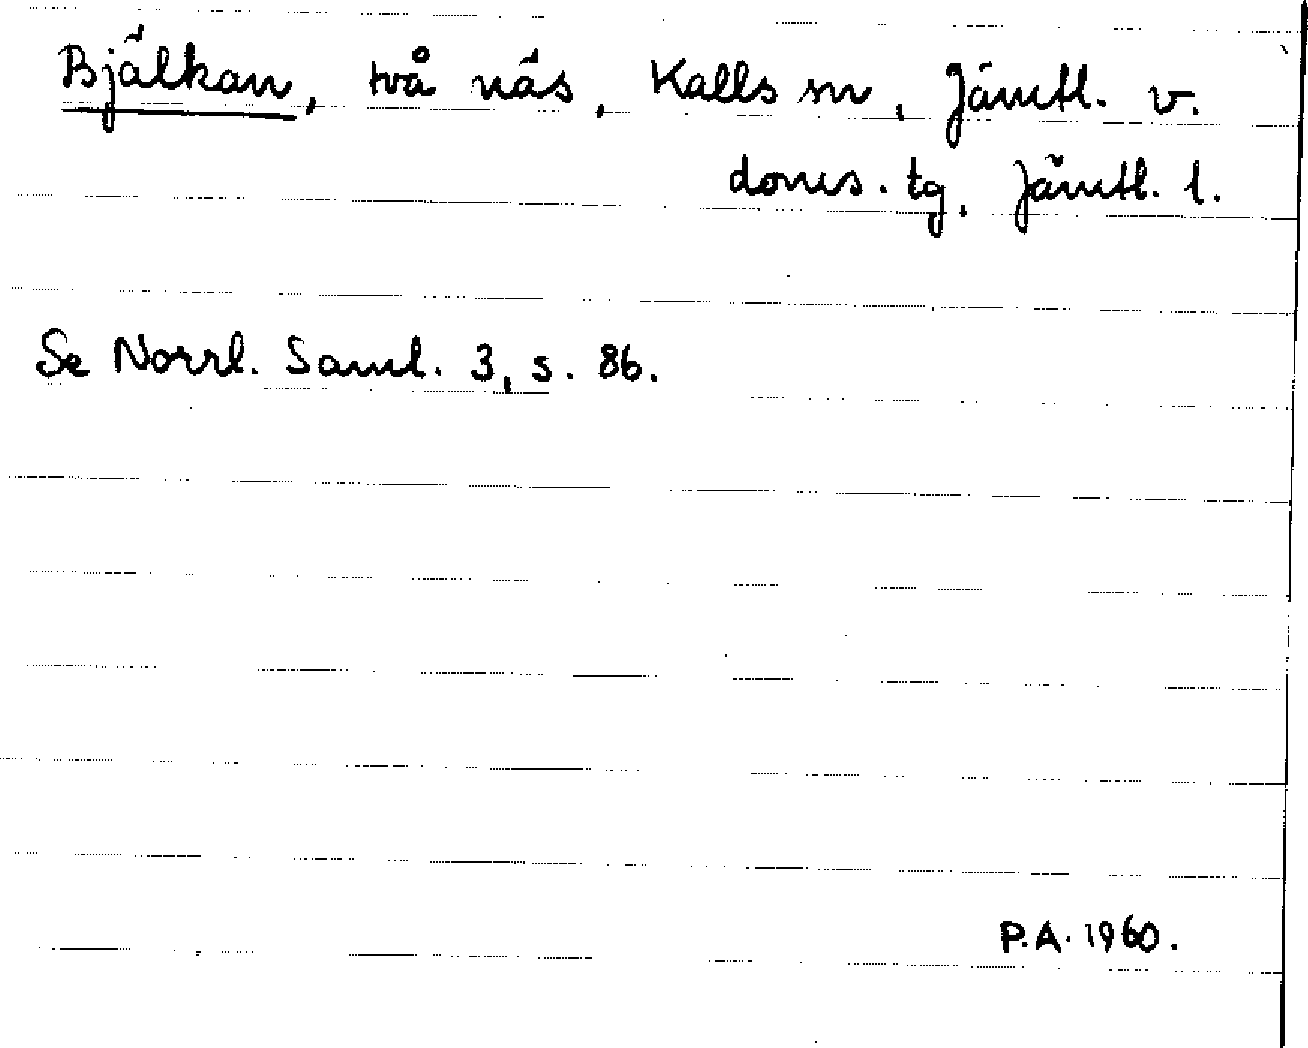 Bjälkan, två näs, Kalls sn, Jämtl. v.
doms. tg, Jämtl. l.
Se Norrl. Saml. 3, s. 86.
P.A. 1960.